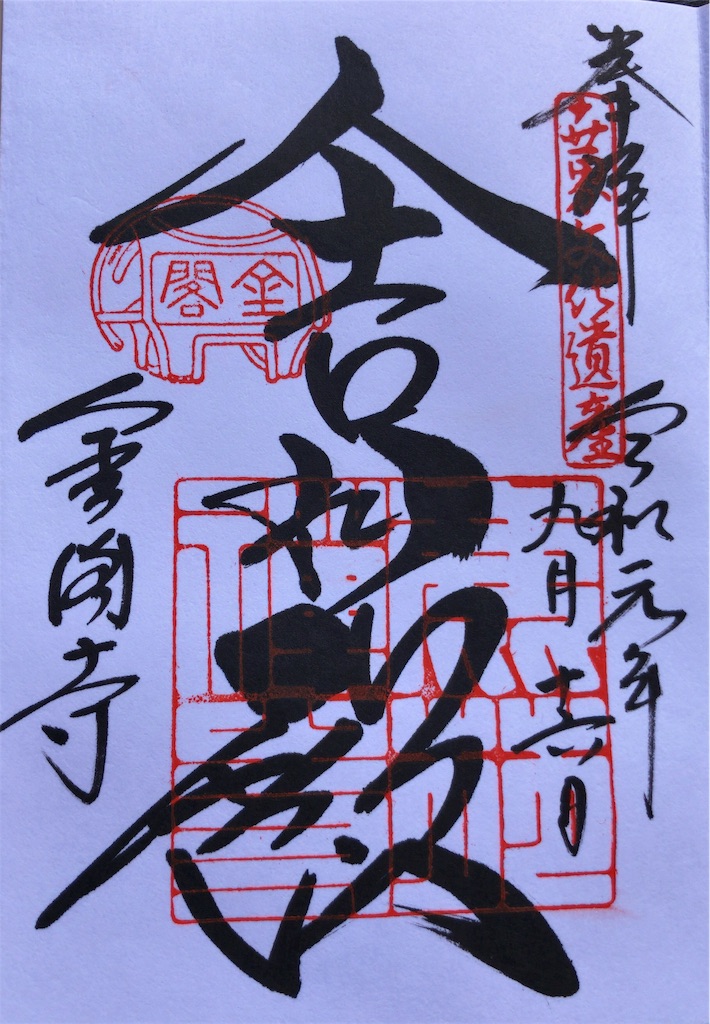 奉拝
世界文化遺産
令和元年
九月十六日
舎利殿
金閣
金閣寺